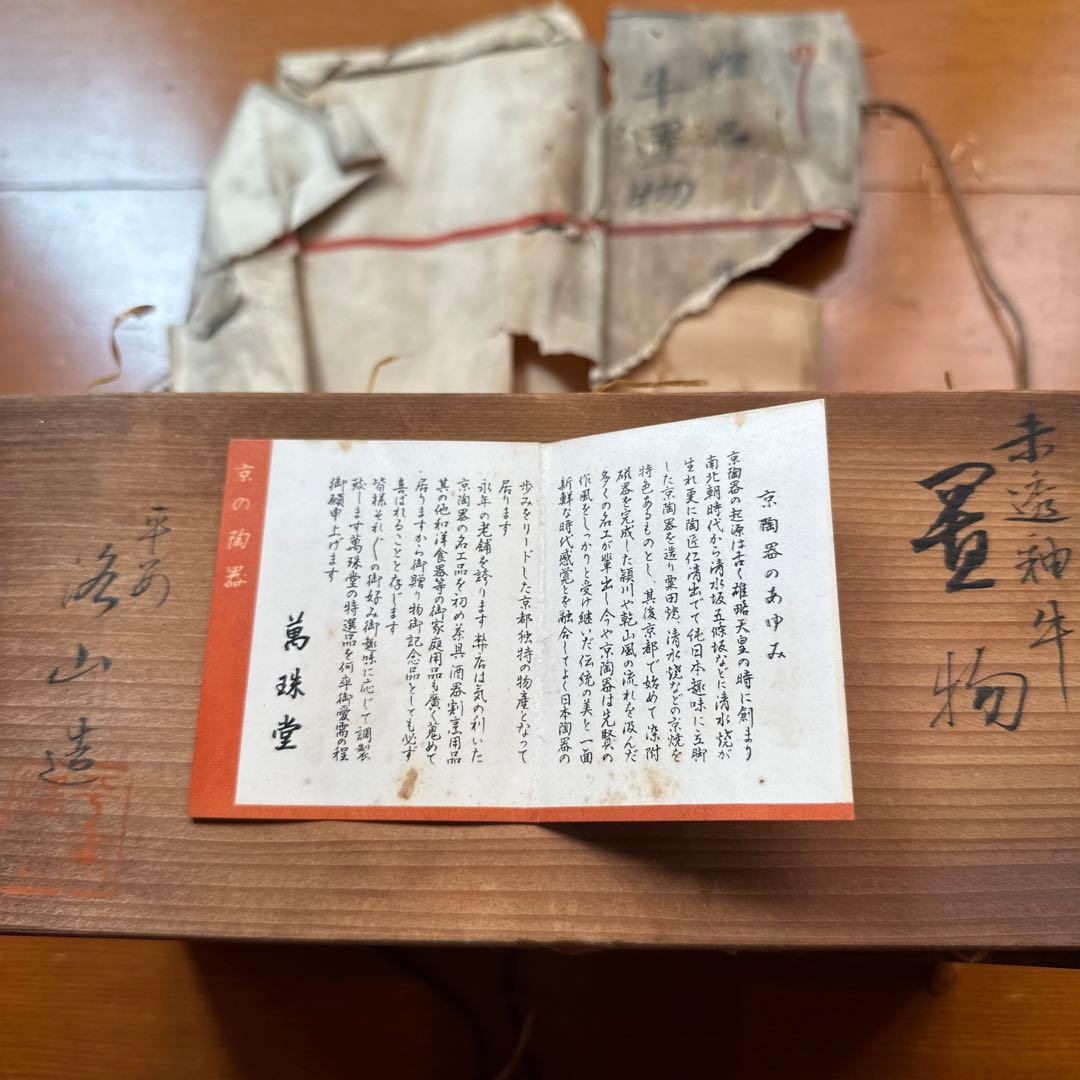 牛置物
赤透釉牛
置物
京陶器のあゆみ
京陶器の起源は古く雄略天皇の時に創まり
南北朝時代から清水坂五條坂などに清水焼が
生れ更に陶匠仁清出でて純日本趣味に立脚
した京陶器を造り粟田焼、清水焼などの京焼を
特色あるものとし、其後京都で始めて染附
磁器を完成した頴川や乾山風の流れを汲んだ
多くの名工が輩出し今や京陶器は先賢の
作風をしっかりと受け継いだ伝統の美と一面
新鮮な時代感覚とを融合してよく日本陶器の
歩みをリードした京都独特の物産となって
居ります
永年の老舗を誇ります弊店は気の利いた
京陶器の名工品を初め茶具酒器割烹用品
其の他和洋食器等の御家庭用品も廣く蒐めて
居りますから御贈り物御記念品としても必ず
喜ばれることと存じます
皆様それぐの御好み御趣味に応じて調製
致します萬珠堂の特選品を何卒御愛需の程
御願申上げます
萬珠堂
京の陶器
平安
洛山造